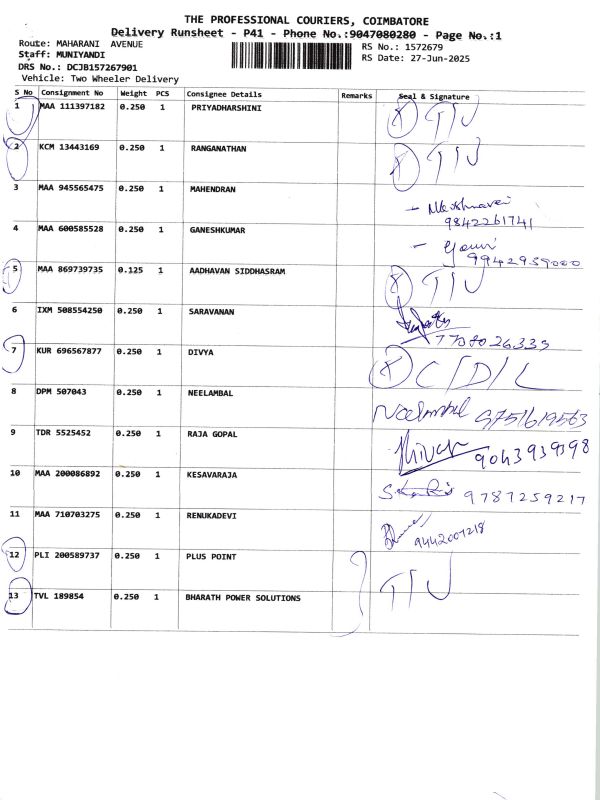 THE PROFESSIONAL COURIERS, COIMBATORE
Delivery Runsheet - P41 - Phone No.:9047080280 - Page No.:1
Route: MAHARANI AVENUE
RS No.: 1572679
Staff: MUNIYANDI
RS Date: 27-Jun-2025
DRS No.: DCJB157267901
Vehicle: Two Wheeler Delivery
S No Consignment No Weight PCS Consignee Details Remarks Seal & Signature
1 MAA 111397182 0.250 1 PRIYADHARSHINI
2 KCM 13443169 0.250 1 RANGANATHAN
3 MAA 945565475 0.250 1 MAHENDRAN
9842261741
4 MAA 600585528 0.250 1 GANESHKUMAR
- Gowri
9942959000
5 MAA 869739735 0.125 1 AADHAVAN SIDDHASRAM
6 IXM 508554250 0.250 1 SARAVANAN
7708026339
7 KUR 696567877 0.250 1 DIVYA C/D/L
8 DPM 507043 0.250 1 NEELAMBAL
Neelambal 9751619563
9 TDR 5525452 0.250 1 RAJA GOPAL
9043939398
10 MAA 200086892 0.250 1 KESAVARAJA
9787259217
11 MAA 710703275 0.250 1 RENUKADEVI
9442007218
12 PLI 200589737 0.250 1 PLUS POINT
13 TVL 189854 0.250 1 BHARATH POWER SOLUTIONS